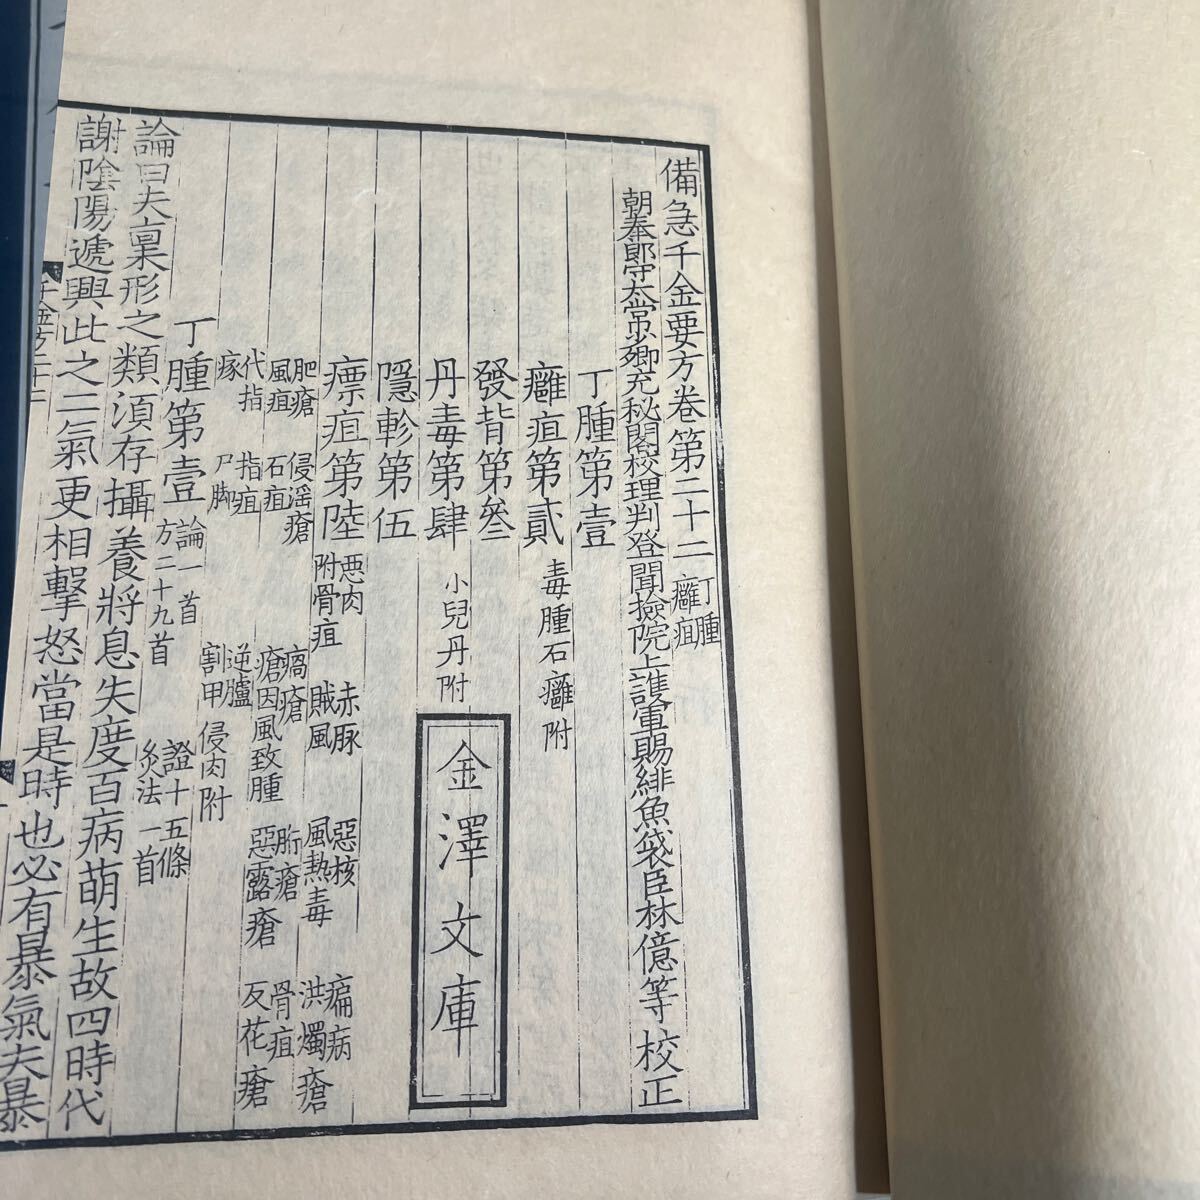 備急千金要方卷第二十二 丁腫 癰疽
朝奉郎守太常少卿充秘閣校理判登聞撿院上護軍賜緋魚袋臣林億等 校正
丁腫第壹
癰疽第貳 毒腫石癰附
發背第叄
丹毒第肆 小兒丹附
隱軫第伍
瘭疽第陸 惡肉 赤脉 惡核 瘑病
附骨疽 賊風 風熱毒 洪燭瘡
肥瘡 侵淫瘡 瘑瘡 胻瘡 骨疽
風疽 石疽 瘡因風致腫 惡露瘡 反花瘡
代指 指疽 逆臚
瘃 尸脚 割甲 侵肉附
丁腫第壹 論一首 證十五條
方二十九首 灸法一首
論曰夫稟形之類須存攝養將息失度百病萌生故四時代
謝陰陽遞興此之二氣更相擊怒當是時也必有暴氣夫暴
金澤文庫